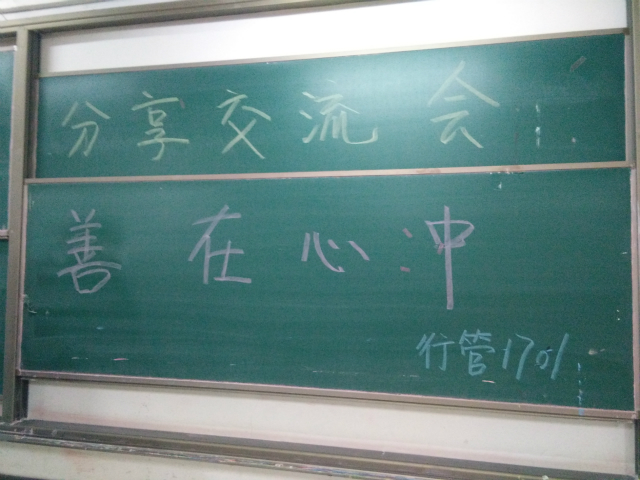 分享交流会
善在心冲
行管1701